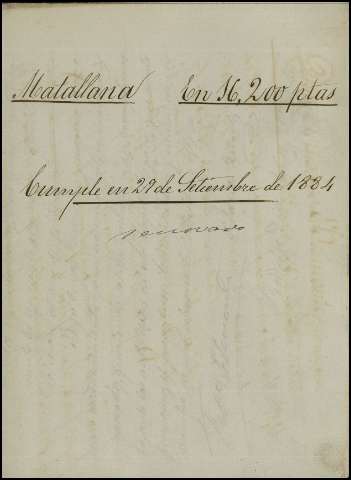 Matallana En 16,200 ptas
Cumple en 29 de Setiembre de 1884
renovado